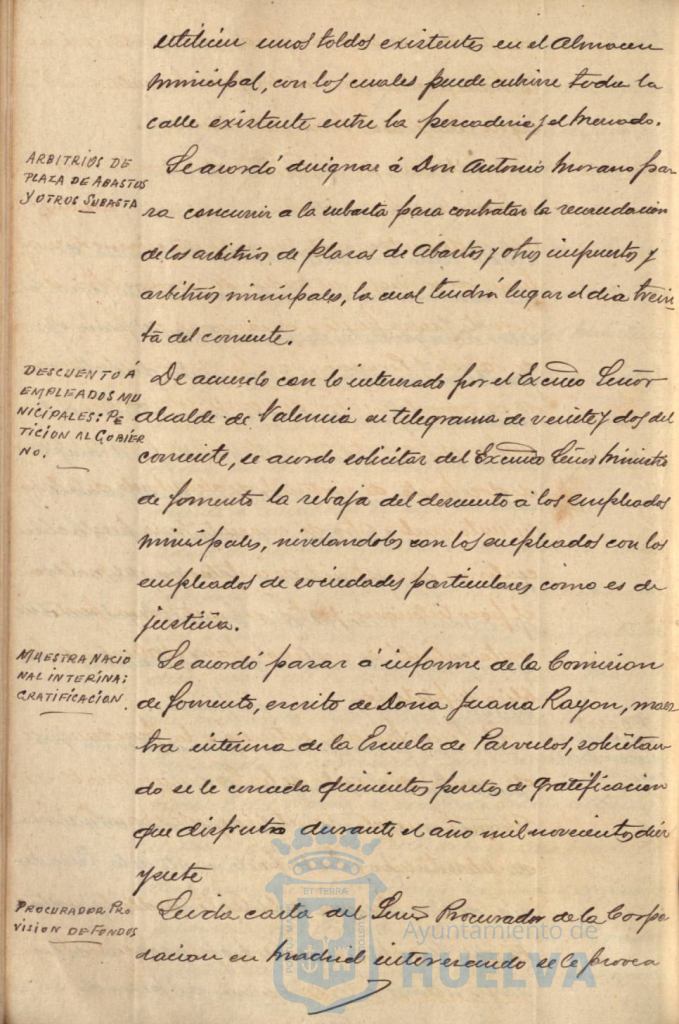 utilicen unos toldos existentes en el Almacen
municipal, con los cuales puede cubrirse toda la
calle existente entre la pescaderia y el Mercado.
ARBITRIOS DE
PLAZA DE ABASTOS
Y OTROS SUBASTA
Se acordó designar á Don Antonio Morano pa-
ra concurrir a la subasta para contratar la recaudacion
de los arbitrios de Plazas de Abastos y otros impuestos y
arbitrios municipales, la cual tendrá lugar el dia trein-
ta del corriente.
DESCUENTO Á
EMPLEADOS MU
NICIPALES: PE
TICION AL GOBIER
NO.
De acuerdo con lo interesado por el Excmo Señor
Alcalde de Valencia en telegrama de veinte y dos del
corriente, se acordo solicitar del Excmo Señor Ministro
de Fomento la rebaja del descuento á los empleados
municipales, nivelandoles con los empleados con los
empleados de sociedades particulares como es de
justicia.
MUESTRA NACIO
NAL INTERINA:
GRATIFICACION.
Se acordó pasar á informe de la Comision
de Fomento, escrito de Doña Juana Rayon, maes
tra interina de la Escuela de Parvulos, solicitan-
do se le conceda quinientas pesetas de gratificacion
que disfrutó durante el año mil novecientos diez
y siete
PROCURADOR PRO
VISION DE FONDOS
Leida carta del Señor Procurador de la Corpo
racion en Madrid interesando se le provea
Ayuntamiento de
HUELVA